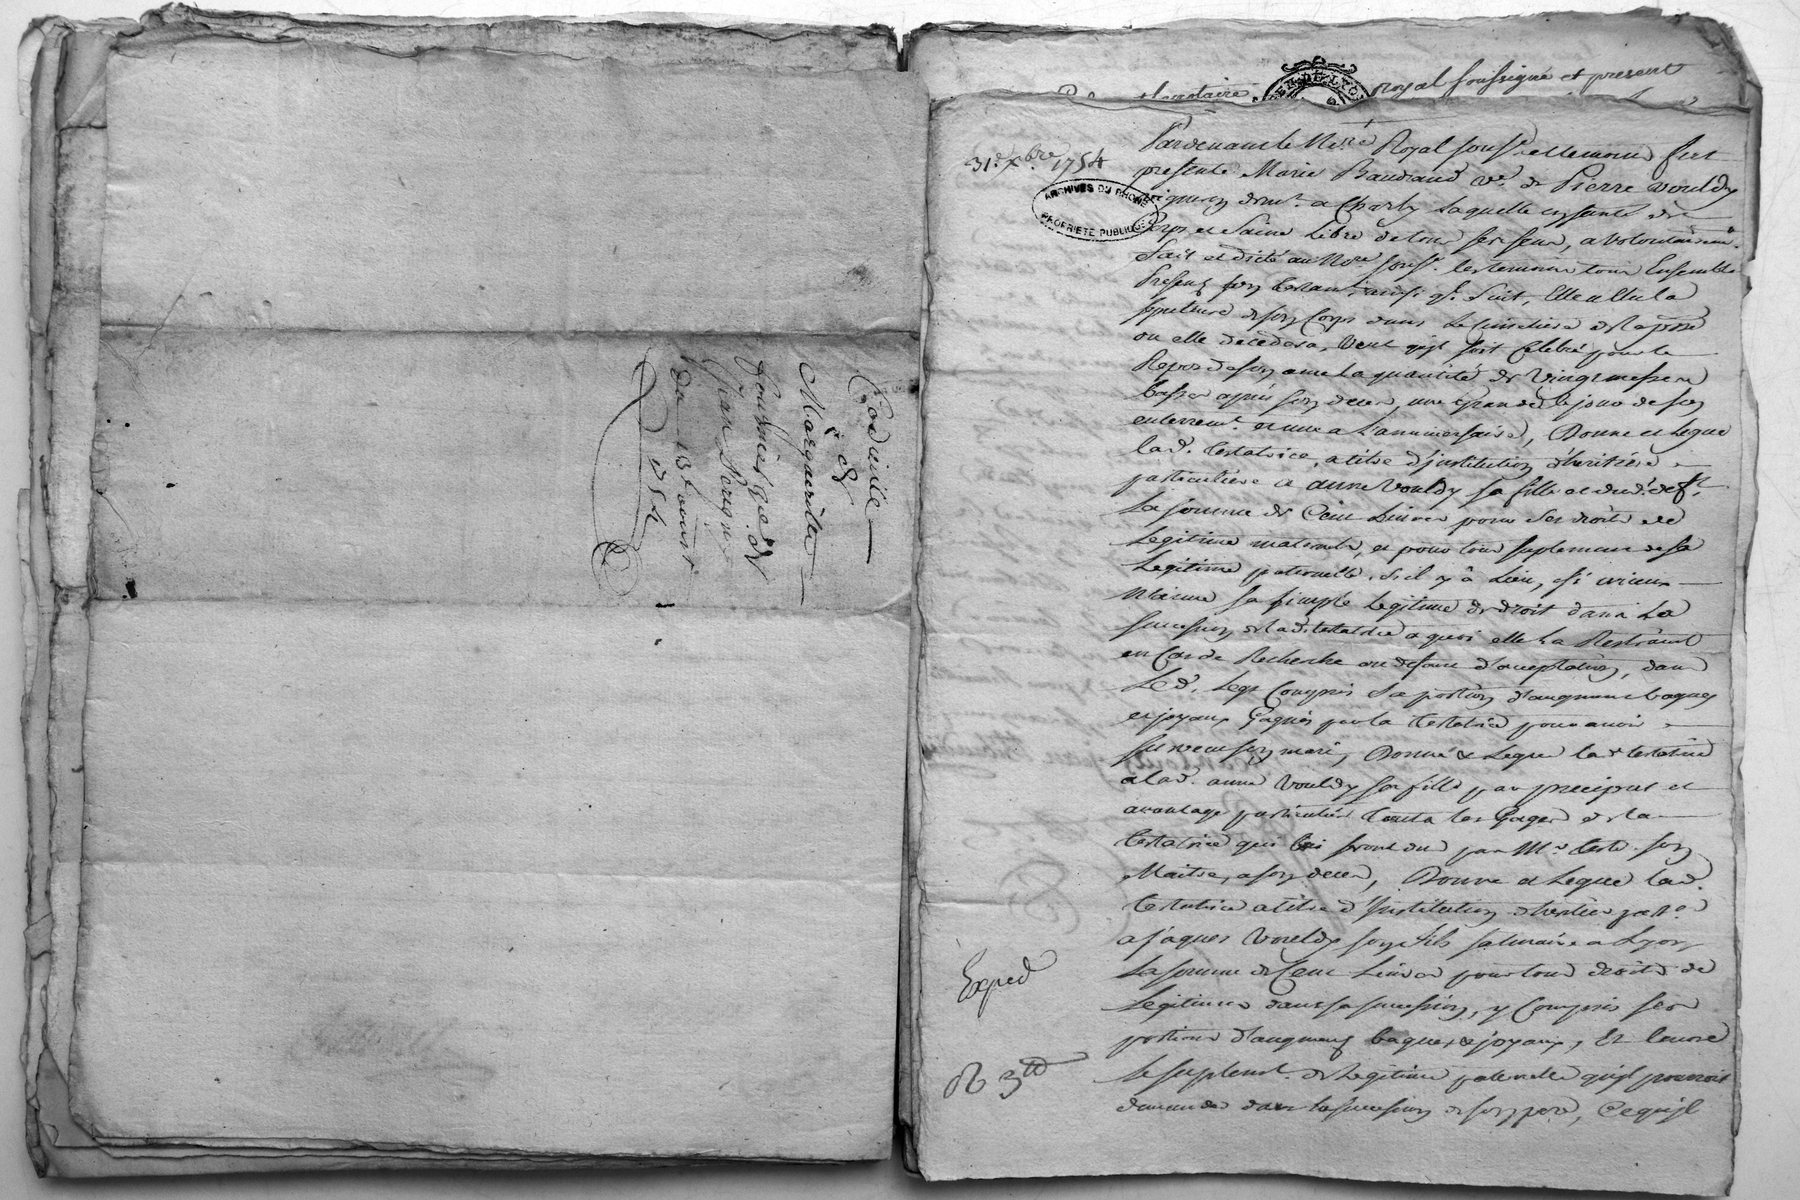 Codicille
de
Marguerite
du 13 aoust
royal soussigné et present
31e Xbre 1754
ARCHIVES DU RHONE
PROPRIETE PUBLIQUE
Pardevant le No.re Royal souse. et temoins fut
presente Marie Baudrand ve. de Pierre Vouldy
vigneron demt. a Charly laquelle etant de
Corps et Saine Libre de tous ses sens, a volontairemt.
fait et dicté au Nore. souse. les temoins tous Ensemble
Presens son testamt. ainsi qe. Suit, Elle a Elu la
sepulture de son Corps dans Le Cimetiere de la psse
ou elle decedera, veut qu'il soit Celebré pour le
Repos de son ame la quantité de Vingt messes
basses après son deces, une Grande le jour de son
enterremt. et une a L'anniversaire, Donne et Legue
lad. testatrice, a titre d'institution d'heritiere
particuliere a anne Vouldy sa fille et dud. deft.
La somme de Cent Livres pour Ses droits de
Legitime maternelle, et pour tous suplement de sa
Légitime paternelle, s'il y a Lieu, si mieux
n'aime sa simple Legitime de droit dans La
succession de lad. testatrice a quoi elle La Restraint
en Cas de Recherche ou defaut d'acceptation, dans
Led. Legs Compris Sa portion d'augment bagues
et joyaux Gagnés par la testatrice pour avoir
survecu son mari, Donne & Legue lad testatrice
a lad. anne Vouldy sa fille par preciput et
avantage particulier touts les Gages de la
testatrice qui lui seront dus par Mr. son
Maitre, a son deces, Donne et Legue lad.
testatrice a titre d'Institution d'heritier parre.
a jaques Vouldy son fils a Lyon
La somme de Cent Livres pour tous droits de
Legitime dans sa succession, y Compris ses
portions d'augment bagues & joyaux, Et
le suplemt. de Legitime paternelle qu'il pourroit
demander dans la succession de son pere, Ce qu'il
Exped
R 3tt